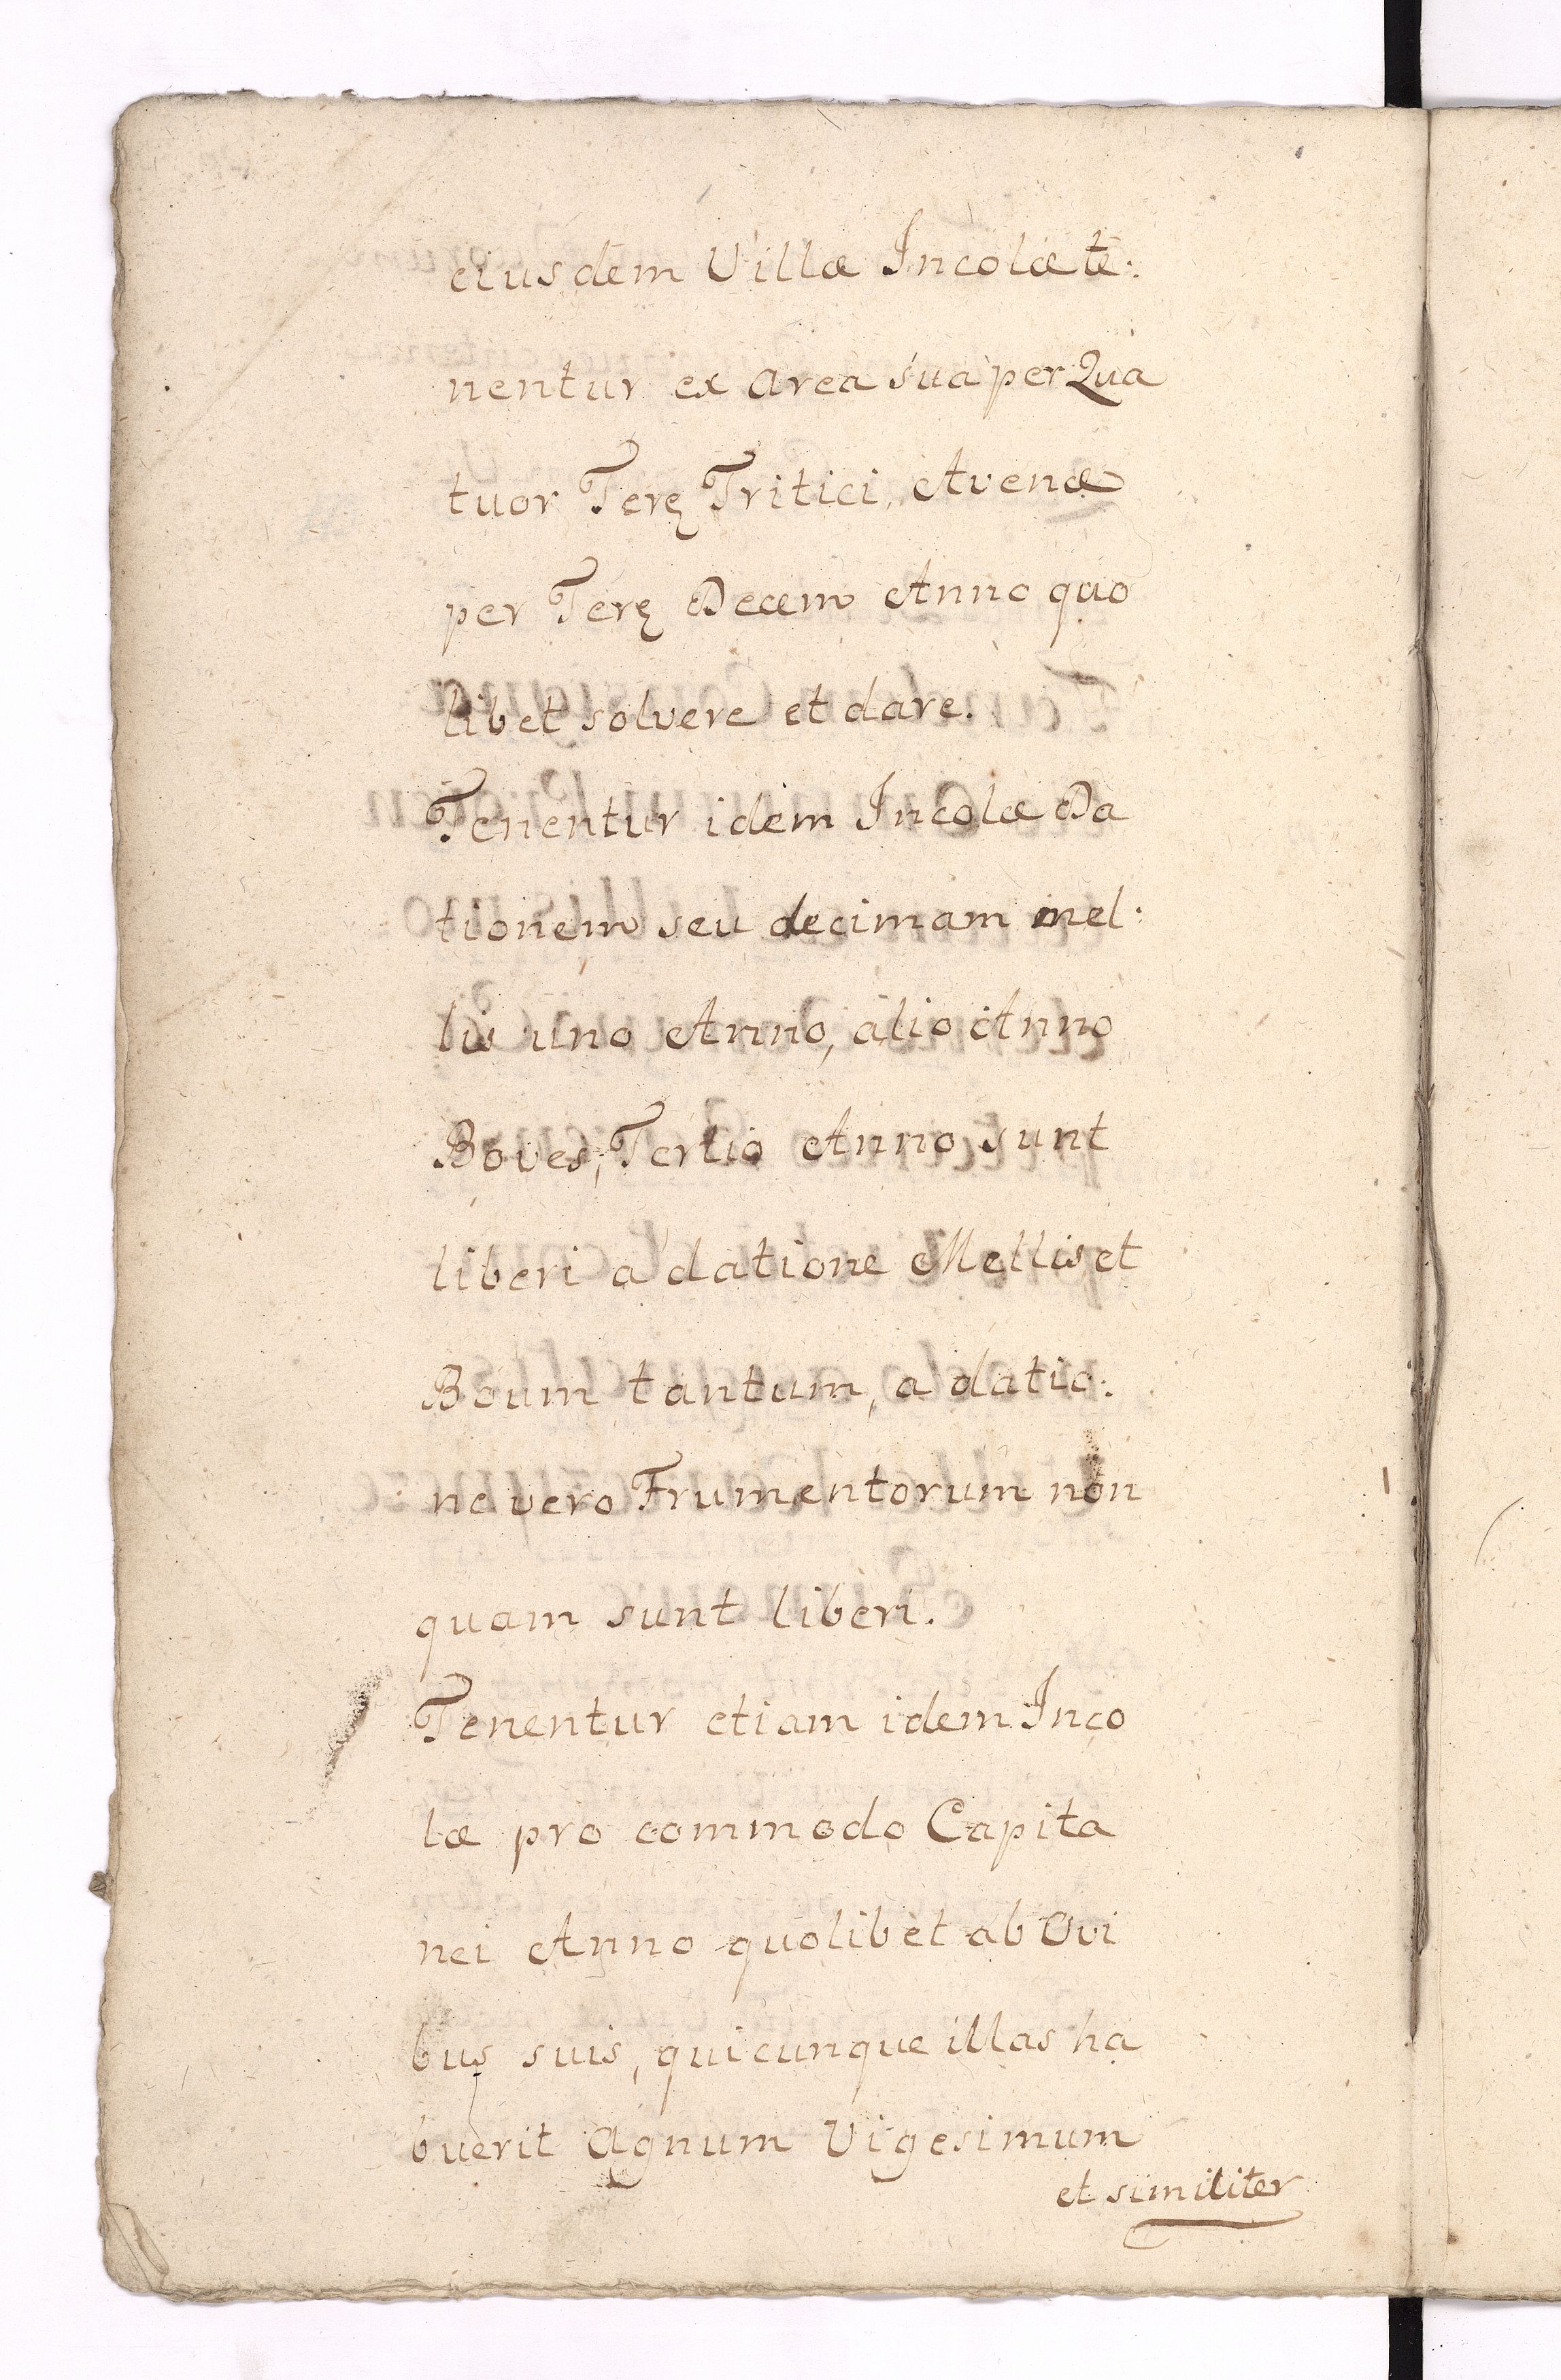 eiusdem Villæ Incolæ te:
nentur ex Area sua per Qua
tuor Terę Tritici, Avenæ
per Terę Decem Anno quo
libet solvere et dare.
Tenentur idem Incolæ Da
tionem seu decimam mel:
lis uno Anno, alio Anno
Boves, Tertio Anno sunt
liberi a datione Mellis et
Boum tantum, a datio:
ne vero Frumentorum non
quam sunt liberi.
Tenentur etiam idem Inco
læ pro commodo Capita
nei Anno quolibet ab Ovi
bus suis, quicunque illas ha
buerit Agnum Vigesimum
et similiter